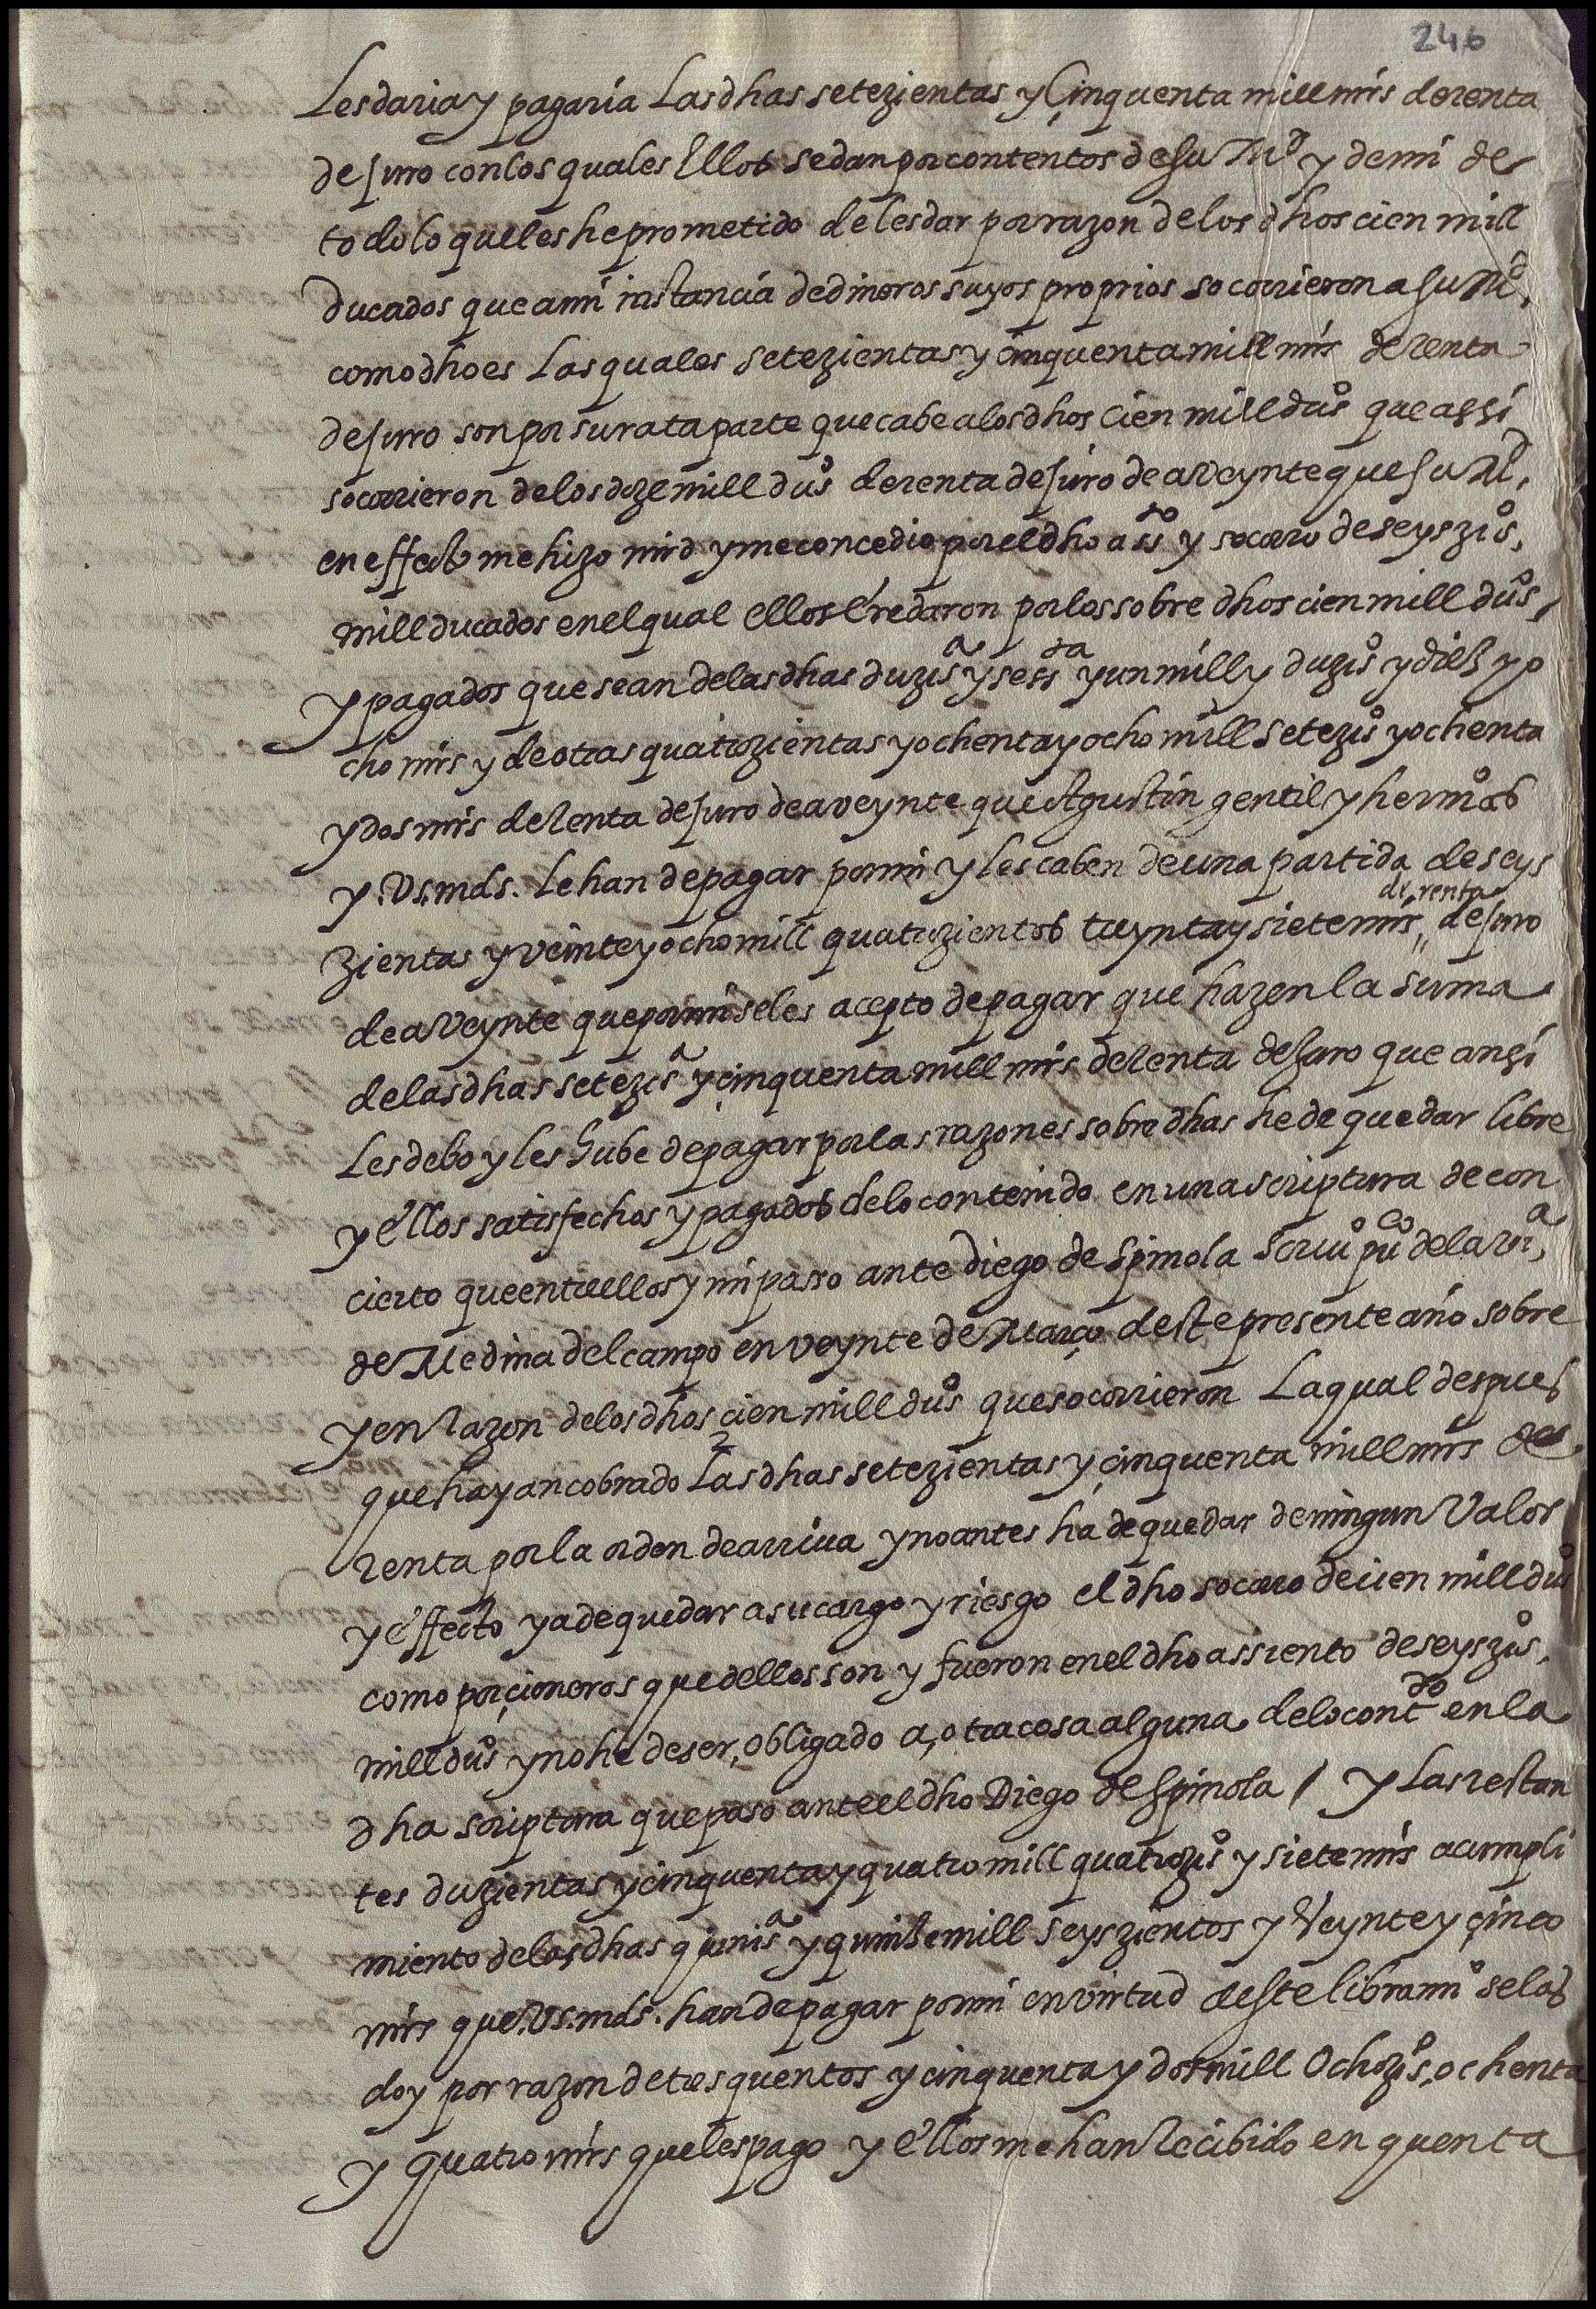 246
Les daria y pagaria Las dhas setezientas y Cinquenta mill mrs de renta
de juro con los quales Ellos se dan por contentos de su Md y de mi de
todo lo que les he prometido de les dar por razon de los dhos cien mill
ducados que a mi instancia de dineros suyos proprios socorrieron a su Md,
como dho es Las quales setezientas y cinquenta mill mrs de renta
de juro son por su rata parte que cabe a los dhos cien mill dus que assi
socorrieron de los doze mill dus de renta de juro de a veynte que su Md,
en effecto me hizo mrd y me concedio por el dho assto y socorro de seyszos,
mill ducados en el qual ellos eredaron por los sobre dhos cien mill dus,
y pagados que sean de las dhas duzias y sessta y un mill y duzios y diez y o
cho mrs y de otras quatrozientas y ochenta y ocho mill setezios y ochenta
y dos mrs de renta de juro de a veynte que Agustin gentil y hermos
y .Vs.mds. Le han de pagar por mi y les caben de una partida de seys
zientas y veinte y ocho mill quatrozientos treynta y siete mrs de renta de juro
de a veynte que por mi se les acepto de pagar que hazen la suma
de las dhas setezias y cinquenta mill mrs de renta de juro que ansi
Les debo y les hube de pagar por las razones sobre dhas he de quedar libre
y ellos satisfechos y pagados de lo contenido en una scriptura de con
cierto que entre ellos y mi paso ante Diego de Spinola scriuo puco de la va,
de Medina del campo en veynte de Março deste presente año sobre
y en Razon de los dhos cien mill dus que socorrieron La qual despues
que hayan cobrado Las dhas setezientas y cinquenta mill mrs de
renta por la orden de arriua y no antes ha de quedar de ningun Valor
y effecto y a de quedar a su cargo y riesgo el dho socorro de cien mill dus
como porçioneros que dellos son y fueron en el dho assiento de seyszos,
mill dus y no he de ser, obligado a, otra cosa alguna de lo contdo en la
dha scriptura que paso ante el dho Diego de Spinola / Y Las restan
tes duzientas y cinquenta y quatro mill quatrozos y siete mrs a cumpli
miento de las dhas quinias y quinze mill seyszientos y Veynte y çinco
mrs que .Vs.mds. han de pagar por mi en virtud deste libramio se las
doy por razon de tres quentos y cinquenta y dos mill Ochozios, ochenta
y quatro mrs que les pago y ellos me han Recibido en quenta